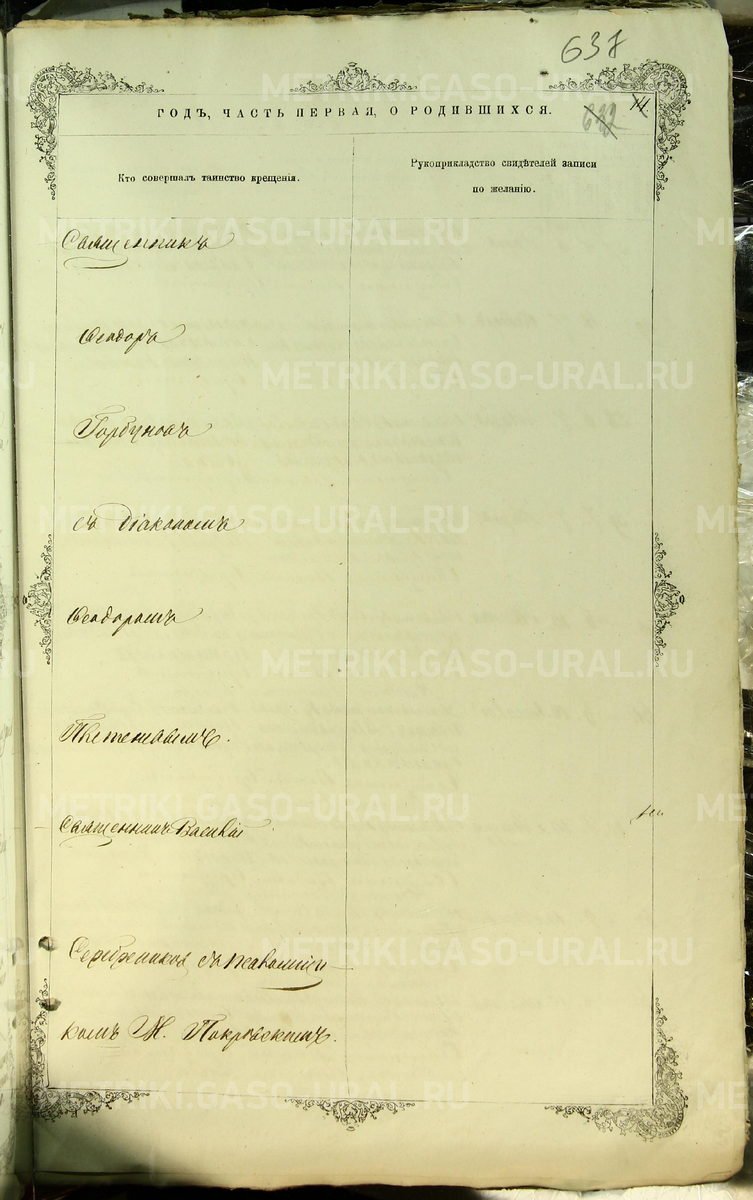 637
ГОДЪ, ЧАСТЬ ПЕРВАЯ, О РОДИВШИХСЯ.
Кто совершалъ таинство крещенія.
Рукоприкладство свидѣтелей записи
по желанію.
Священникъ
Ѳеодоръ
Горбуновъ
съ Діакономъ
Ѳеодоромъ
Священникъ Василій
Серебренниковъ съ псаломщи
комъ М. Покровскимъ.
METRIKI.GASO-URAL.RU